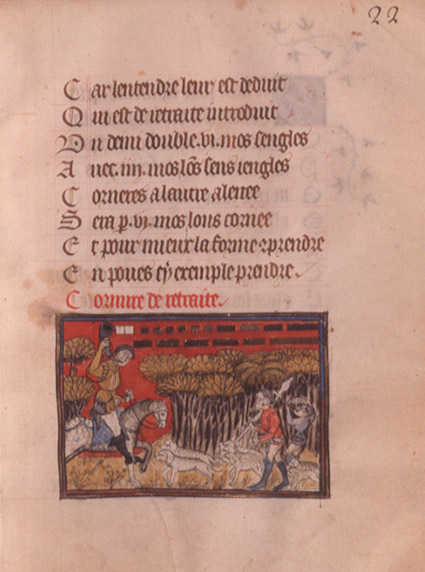 22
Car lentendre leur est deduit
Qui est de retraite introduit
Vn demi double .vi. mos sengles
Auec .iiii. mos lõs sens iengles
Corneres a lautre alenee
Sera p̱ .vi. mos lons cornee
Et pour mieux la forme reprendre
En poues cy exemple prendre.
Cornure de retraite.